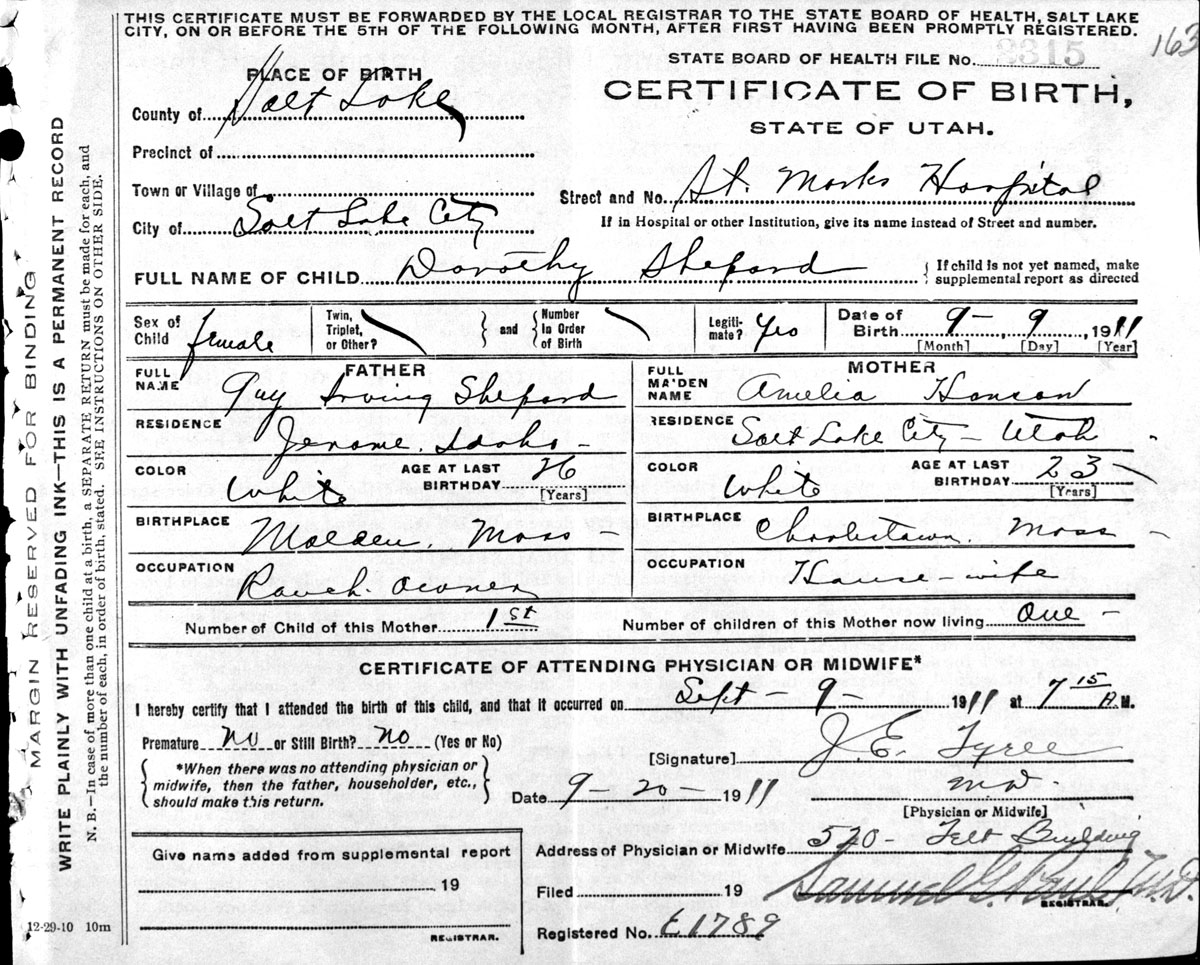 THIS CERTIFICATE MUST BE FORWARDED BY THE LOCAL REGISTRAR TO THE STATE BOARD OF HEALTH, SALT LAKE
CITY, ON OR BEFORE THE 5TH OF THE FOLLOWING MONTH, AFTER FIRST HAVING BEEN PROMPTLY REGISTERED.
163
STATE BOARD OF HEALTH FILE No. 2315
PLACE OF BIRTH
CERTIFICATE OF BIRTH,
County of Salt Lake
STATE OF UTAH.
Precinct of
Town or Village of
Street and No. St. Marks Hospital
City of Salt Lake City
If in Hospital or other Institution, give its name instead of Street and number.
FULL NAME OF CHILD Dorothy Shepard
{ If child is not yet named, make
supplemental report as directed
Sex of Child female
Twin, Triplet, or Other?
} and { Number In Order of Birth
Legiti-mate? Yes
Date of Birth 9 - 9, 1911
[Month] [Day] [Year]
FATHER
FULL NAME Guy Irving Shepard
RESIDENCE Jerome. Idaho -
COLOR White
AGE AT LAST BIRTHDAY 26 [Years]
BIRTHPLACE Malden, Mass -
OCCUPATION Ranch. Owner
MOTHER
FULL MAIDEN NAME Amelia Hanson
RESIDENCE Salt Lake City - Utah
COLOR White
AGE AT LAST BIRTHDAY 23 [Years]
BIRTHPLACE Charlestown. Mass -
OCCUPATION House-wife
Number of Child of this Mother 1st
Number of children of this Mother now living One -
CERTIFICATE OF ATTENDING PHYSICIAN OR MIDWIFE*
I hereby certify that I attended the birth of this child, and that it occurred on Sept - 9 - 1911 at 7 15 A.M.
Premature No or Still Birth? No (Yes or No)
[Signature] J. E. Tyree
MD
[Physician or Midwife]
{ *When there was no attending physician or
midwife, then the father, householder, etc.,
should make this return. }
Date 9 - 20 - 1911
Address of Physician or Midwife 520 - Felt Building
Give name added from supplemental report
19
REGISTRAR.
Filed 19
Samuel G. Paul M.D.
REGISTRAR.
Registered No. 1789
12-29-10 10m
MARGIN RESERVED FOR BINDING
WRITE PLAINLY WITH UNFADING INK—THIS IS A PERMANENT RECORD
N. B.—In case of more than one child at a birth, a SEPARATE RETURN must be made for each, and
the number of each, in order of birth, stated. SEE INSTRUCTIONS ON OTHER SIDE.